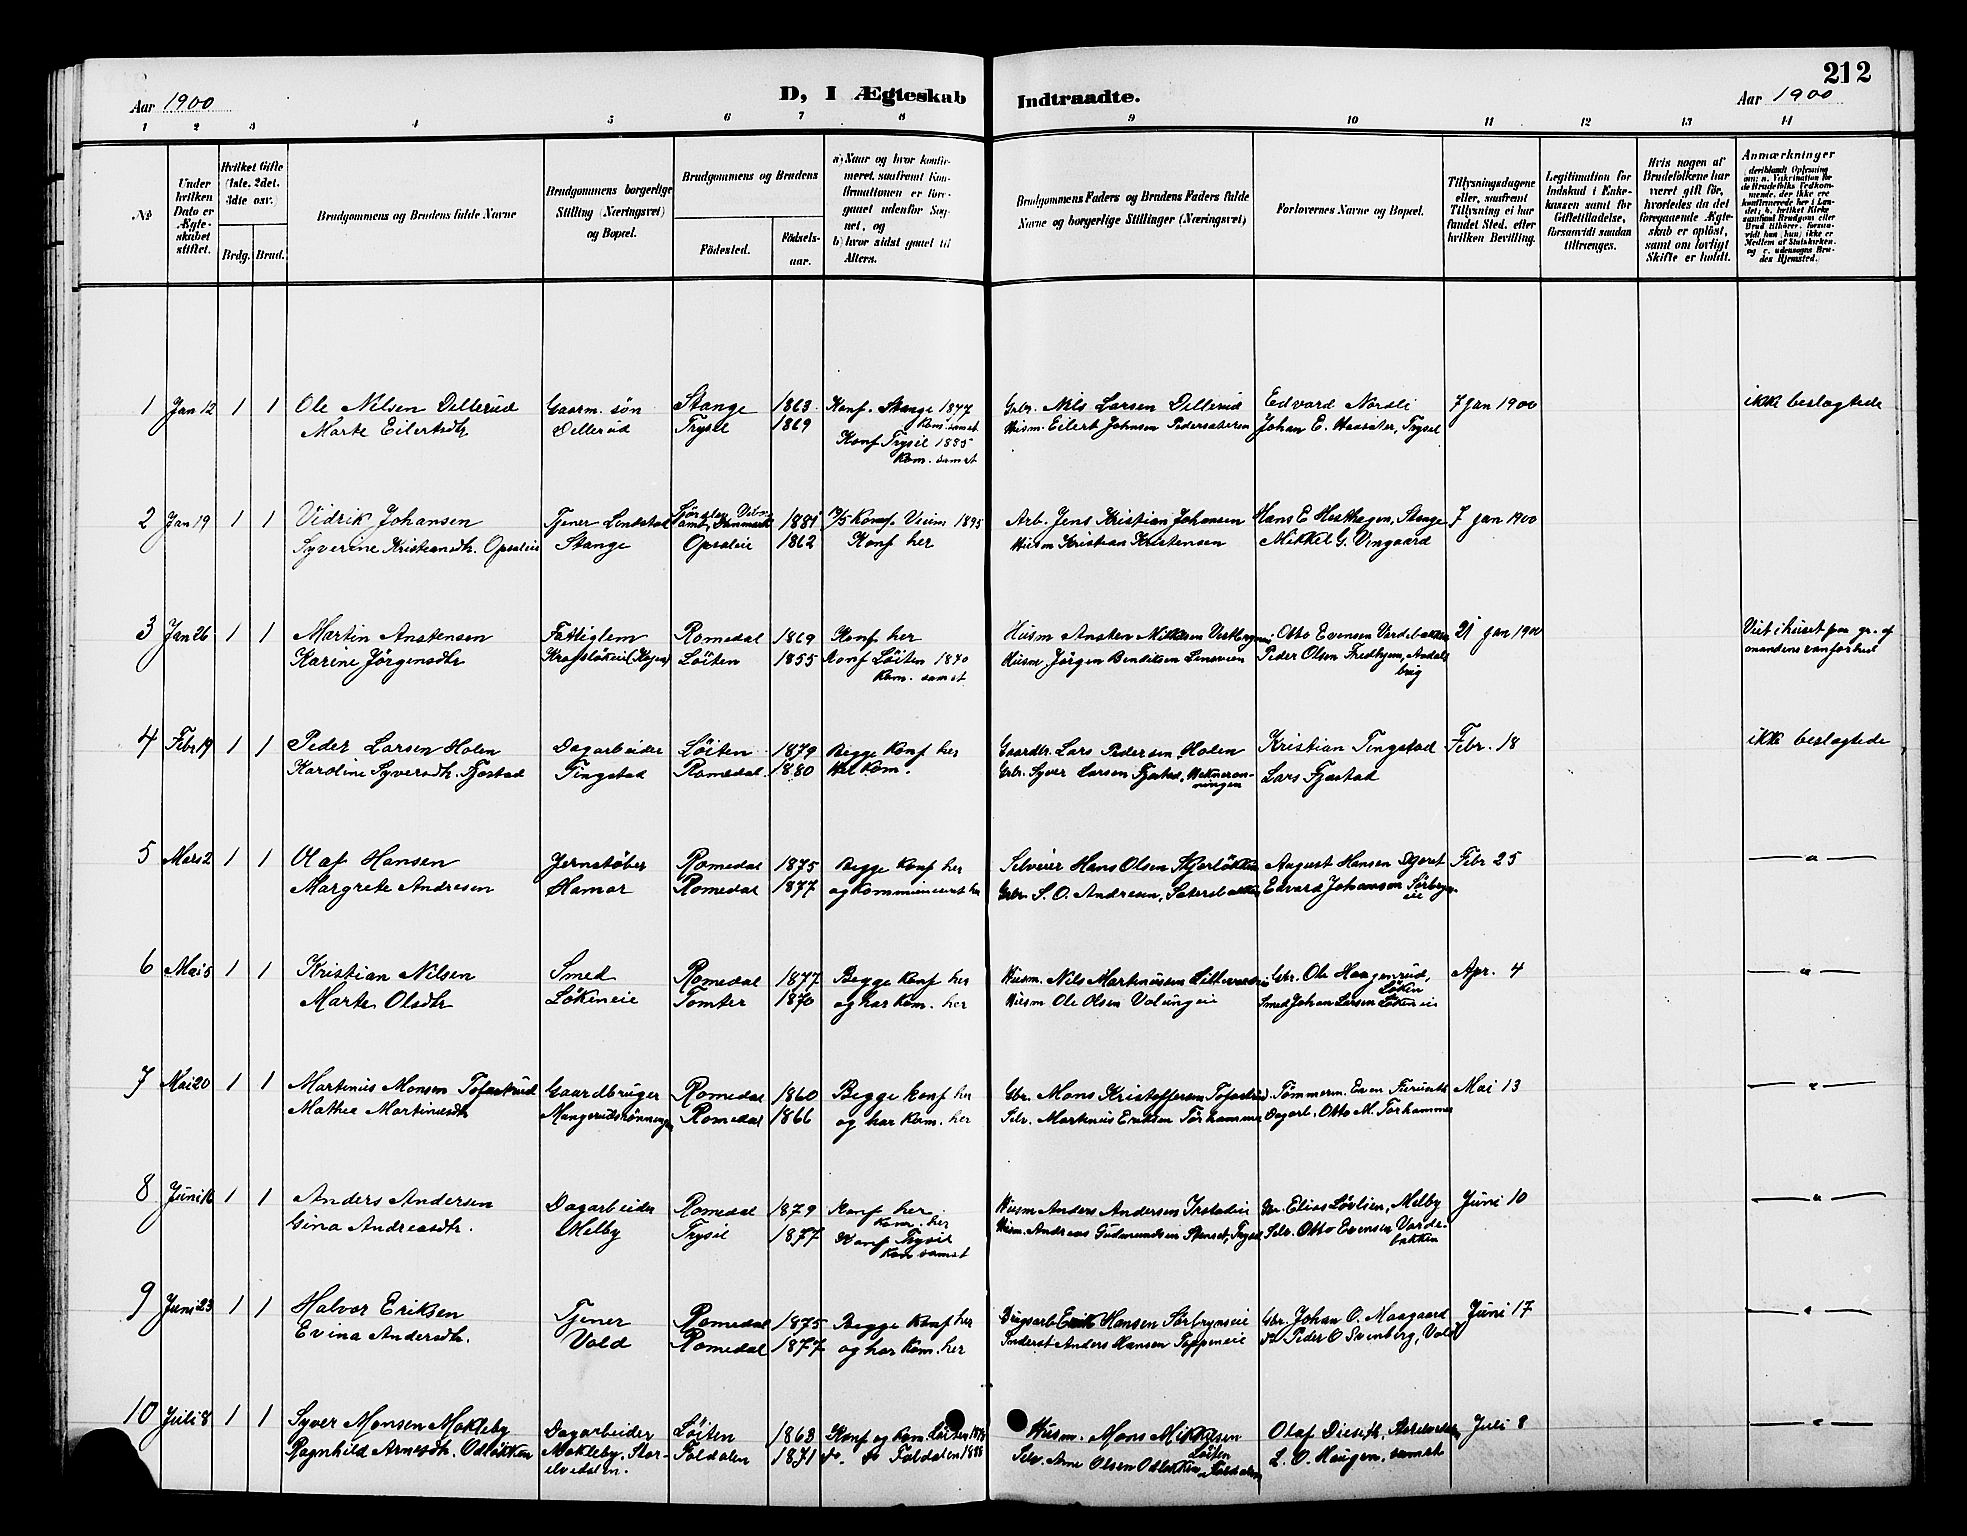 212
Aar 1900
D, I Ægteskab Indtraadte.
Aar 1900
1 2 3 4 5 6 7 8 9 10 11 12 13 14
№
Under hvilken Dato er Ægteskabet stiftet.
Hvilket Gifte (1ste, 2det, 3die osv.)
Brdg. Brud.
Brudgommens og Brudens fulde Navne
Brudgommens borgerlige Stilling (Næringsvei) og Bopæl.
Brudgommens og Brudens
Födested. Födselsaar.
a) Naar og hvor konfirmeret, saafremt Konfirmationen er foregaaet udenfor Sognet, og
b) hvor sidst gaaet til Alters.
Brudgommens Faders og Brudens Faders fulde Navne og borgerlige Stillinger (Næringsvei)
Forlovernes Navne og Bopæl.
Tillysningsdagene eller, saafremt Tillysning ei har fundet Sted, efter hvilken Bevilling.
Legitimation for Indskud i Enkekassen samt for Giftetilladelse, forsaavidt saadan tiltrænges.
Hvis nogen af Brudefolkene har været gift för, hvorledes da det foregaaende Ægteskab er oplöst, samt om lovligt Skifte er holdt.
Anmærkninger
1 Jan 12 1 1 Ole Nilsen Dellerud Gaarm. sön Stange 1863 Konf. Stange 1877 Kom. samst Gbr. Nils Larsen Dellerud Edvard Nordli 7 Jan 1900 ikke beslagtede
Marte Eilertsdtr Dellerud Trysil 1869 Konf Trysil 1885 Kom. samst Husm. Eilert Johnsen Johan E. Trysil
2 Jan 19 1 1 Vidrik Johansen Tjener Danmark 1881 Konf. 1895 Arb. Jens Kristian Johansen Hans E Hesthagen, Stange 7 Jan 1900
Syverine Kristiansdtr. Opsaleie Stange Opsaleie 1862 Konf her Husm Kristian Kristensen Mikkel G. Vingaard
3 Jan 26 1 1 Martin Anstensen Fattiglem Romedal 1869 Konf her Husm Ansten Otto Evensen Vardebakken 21 Jan 1900 Viet i huset paa gr. af
Karine Jörgensdtr Löiten 1855 Konf Löiten 1870 Kom. samst Husm Jörgen Bendiksen Peder Olsen mandens vanförhed
4 Febr 19 1 1 Peder Larsen Holen Dagarbeider Löiten 1879 Begge Konf her Gaardbr. Lars Pedersen Holen Kristian Tingstad Febr. 18 ikke beslagtede
Karoline Syversdtr. Fjæstad Tingstad Romedal 1880 Kom. Gbr. Syver Larsen Fjæstad, Lars Fjæstad
5 Mars 2 1 1 Olaf Hansen Jernstöber Romedal 1875 Begge Konf her Selveier Hans Olsen August Hansen Febr 25 — " —
Margrete Andresen Hamar Romedal 1877 og kommuniceret her Gbr. S. O. Andresen, Edvard Johansen Sörbryn eie
6 Mai 5 1 1 Kristian Nilsen Smed Romedal 1877 Begge Konf her Husm. Nils Martinusen Gbr. Ole Haagenrud, Löken Apr. 4 — " —
Marte Olsdtr Lökeneie Tomter 1870 og har Kom. her Husm Ole Olsen Volungeie Smed Johan Larsen Lökeneie
7 Mai 20 1 1 Martinius Monsen Tofastrud Gaardbruger Romedal 1860 Begge Konf her Gbr. Mons Kristoffersen Tofastrud Tömmerm. Even Mai 13 — " —
Mathea Martinusdtr Romedal 1866 og har Kom. her Selv. Martinius Eriksen Torhammer Dagarb. Otto M. Torhammer
8 Juni 16 1 1 Anders Andersen Dagarbeider Romedal 1879 Konf her. Kom. her Husm Anders Andersen Gbr. Elias Lövlien, Melby Juni 10 — " —
Gina Andreasdtr. Melby Trysil 1877 Konf Trysil Kom samst Husm. Andreas Gudmundsen Trysil Selv. Otto Evensen Vardebakken
9 Juni 23 1 1 Halvor Eriksen Tjener Romedal 1875 Begge Konf her Erik Hansen Sörbrynseie Gbr. Johan O. Maagaard Juni 17 — " —
Evina Andersdtr. Vold Romedal 1877 og har Kom. her Inderst Anders Hansen Toppeneie Peder O Svenberg, Vold
10 Juli 8 1 1 Syver Monsen Mökleby Dagarbeider Löiten 1863 Konf og Kom Löiten Husm. Mons Mikkelsen Löiten Olaf Juli 8 — " —
Ragnhild Arnesdtr. Odlökken Mökleby, Storelvedalen. Foldalen 1871 do. do Foldalen Selv. Arne Olsen Odlökken, Foldalen L. O. Haugen, samst